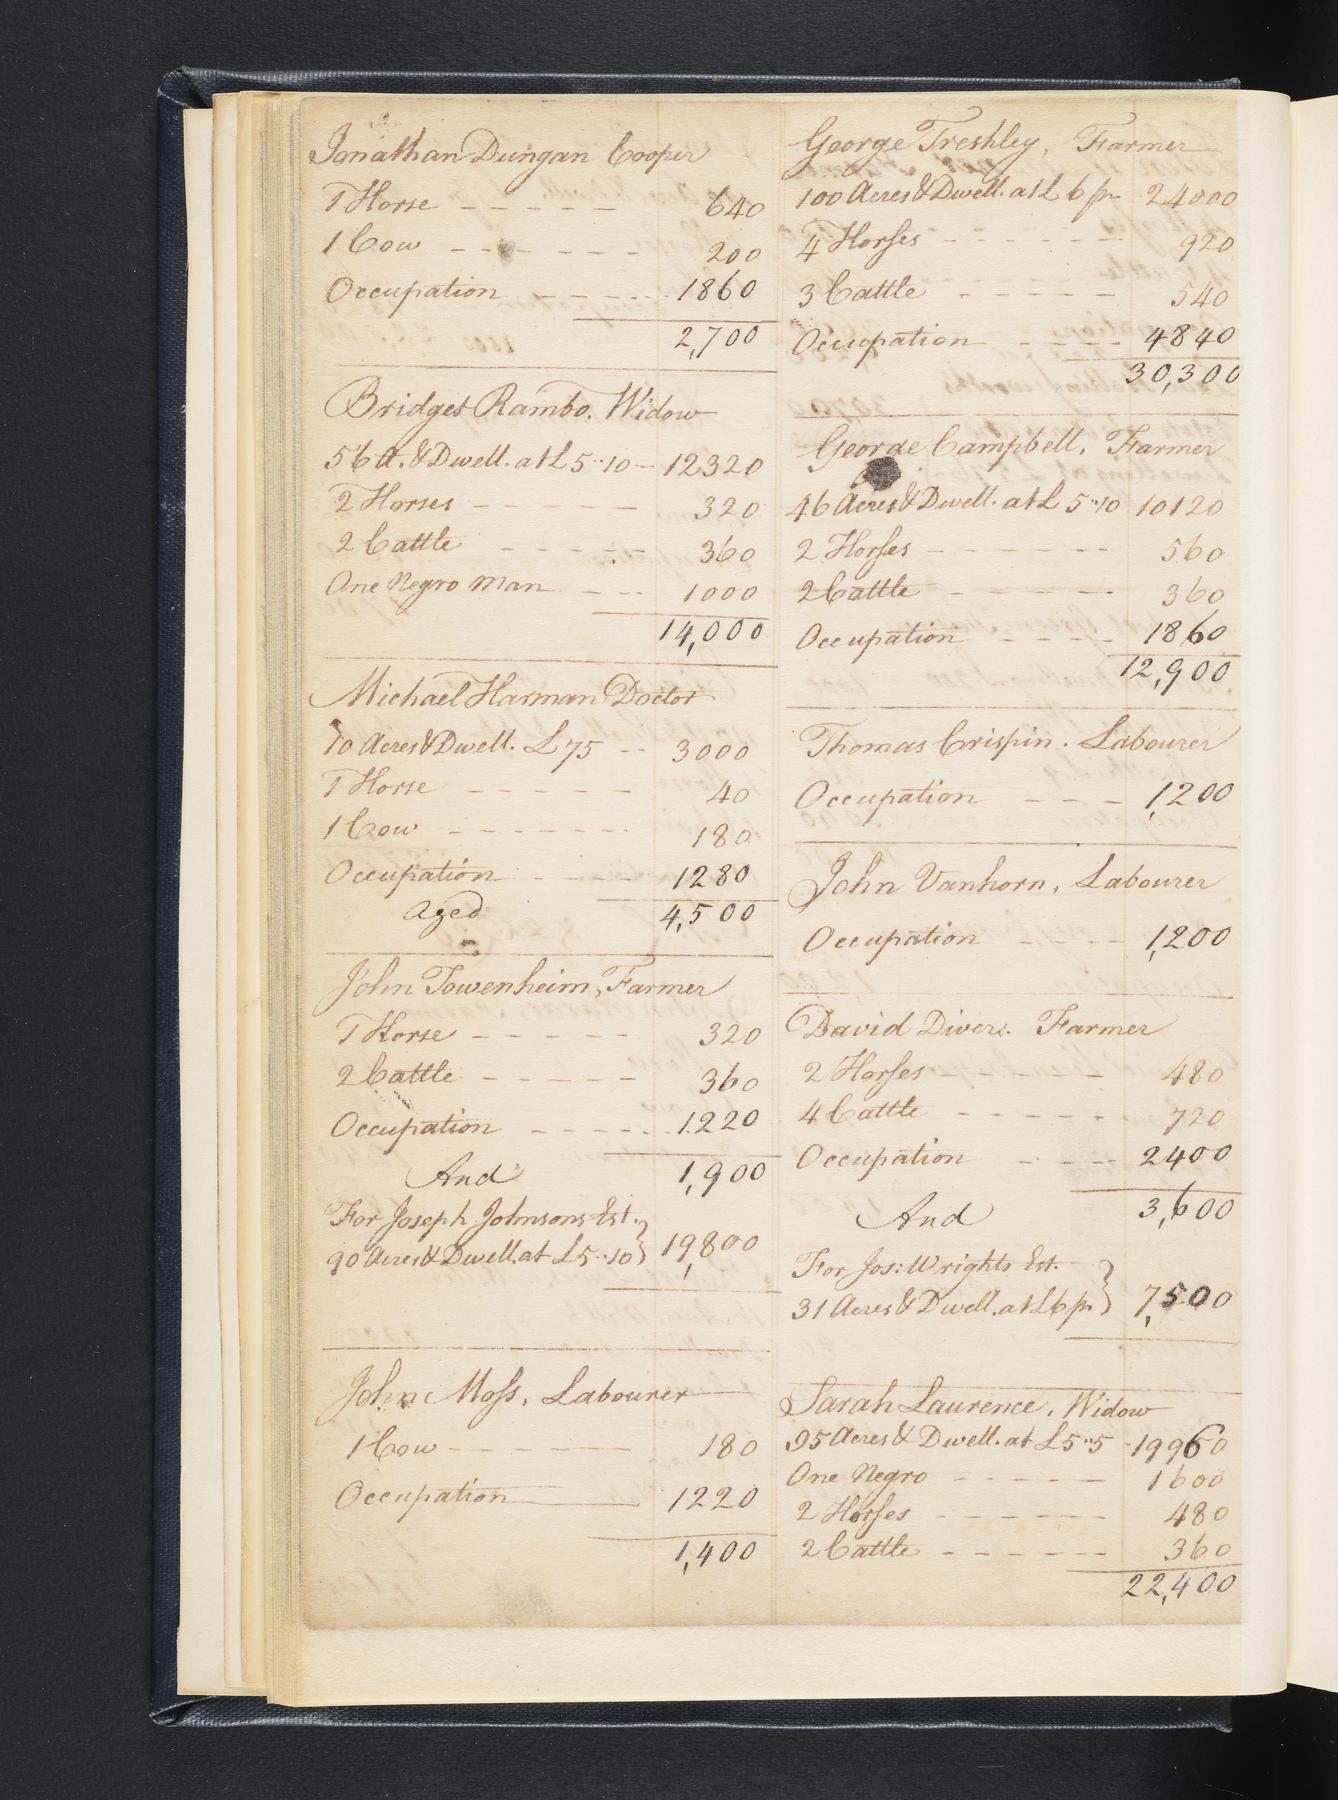 Jonathan Dungan Cooper
1 Horse - - - - - 640
1 Cow - - - - - 200
Occupation - - - - - 1860
2,700
Bridget Rambo. Widow
56 A. & Dwell. at £5..10 - 12320
2 Horses - - - - - 320
2 Cattle - - - - - 360
One Negro Man - - - 1000
14,000
Michael Harman Doctor
10 Acres & Dwell. £75 - - 3000
1 Horse - - - - - 40
1 Cow - - - - - - 180
Occupation - - - - 1280
Aged 4,500
John Towenheim, Farmer
1 Horse - - - - - 320
2 Cattle - - - - - 360
Occupation - - - - - 1220
And 1,900
For Joseph Johnsons Est.
90 Acres & Dwell. at £5..10 } 19,800
John Moss, Labourer
1 Cow - - - - 180
Occupation 1220
1,400
George Freshley, Farmer
100 Acres & Dwell. at £6 pr 24000
4 Horses - - - - - - 920
3 Cattle - - - - - 540
Occupation - - - - 4840
30,300
George Campbell, Farmer
46 Acres & Dwell. at £5..10 10120
2 Horses - - - - - - 560
2 Cattle - - - - - 360
Occupation - - - - 1860
12,900
Thomas Crispin. Labourer
Occupation - - - - 1,200
John Vanhorn, Labourer
Occupation - - - - 1,200
David Divers. Farmer
2 Horses - - - - - - 480
4 Cattle - - - - - 720
Occupation - - - - 2400
And 3,600
For Jos: Wrights Est.
31 Acres & Dwell. at £6 pr } 7,500
Sarah Laurence, Widow
95 Acres & Dwell. at £5..5 - 19960
One Negro - - - - - 1600
2 Horses - - - - - - 480
2 Cattle - - - - - - 360
22,400